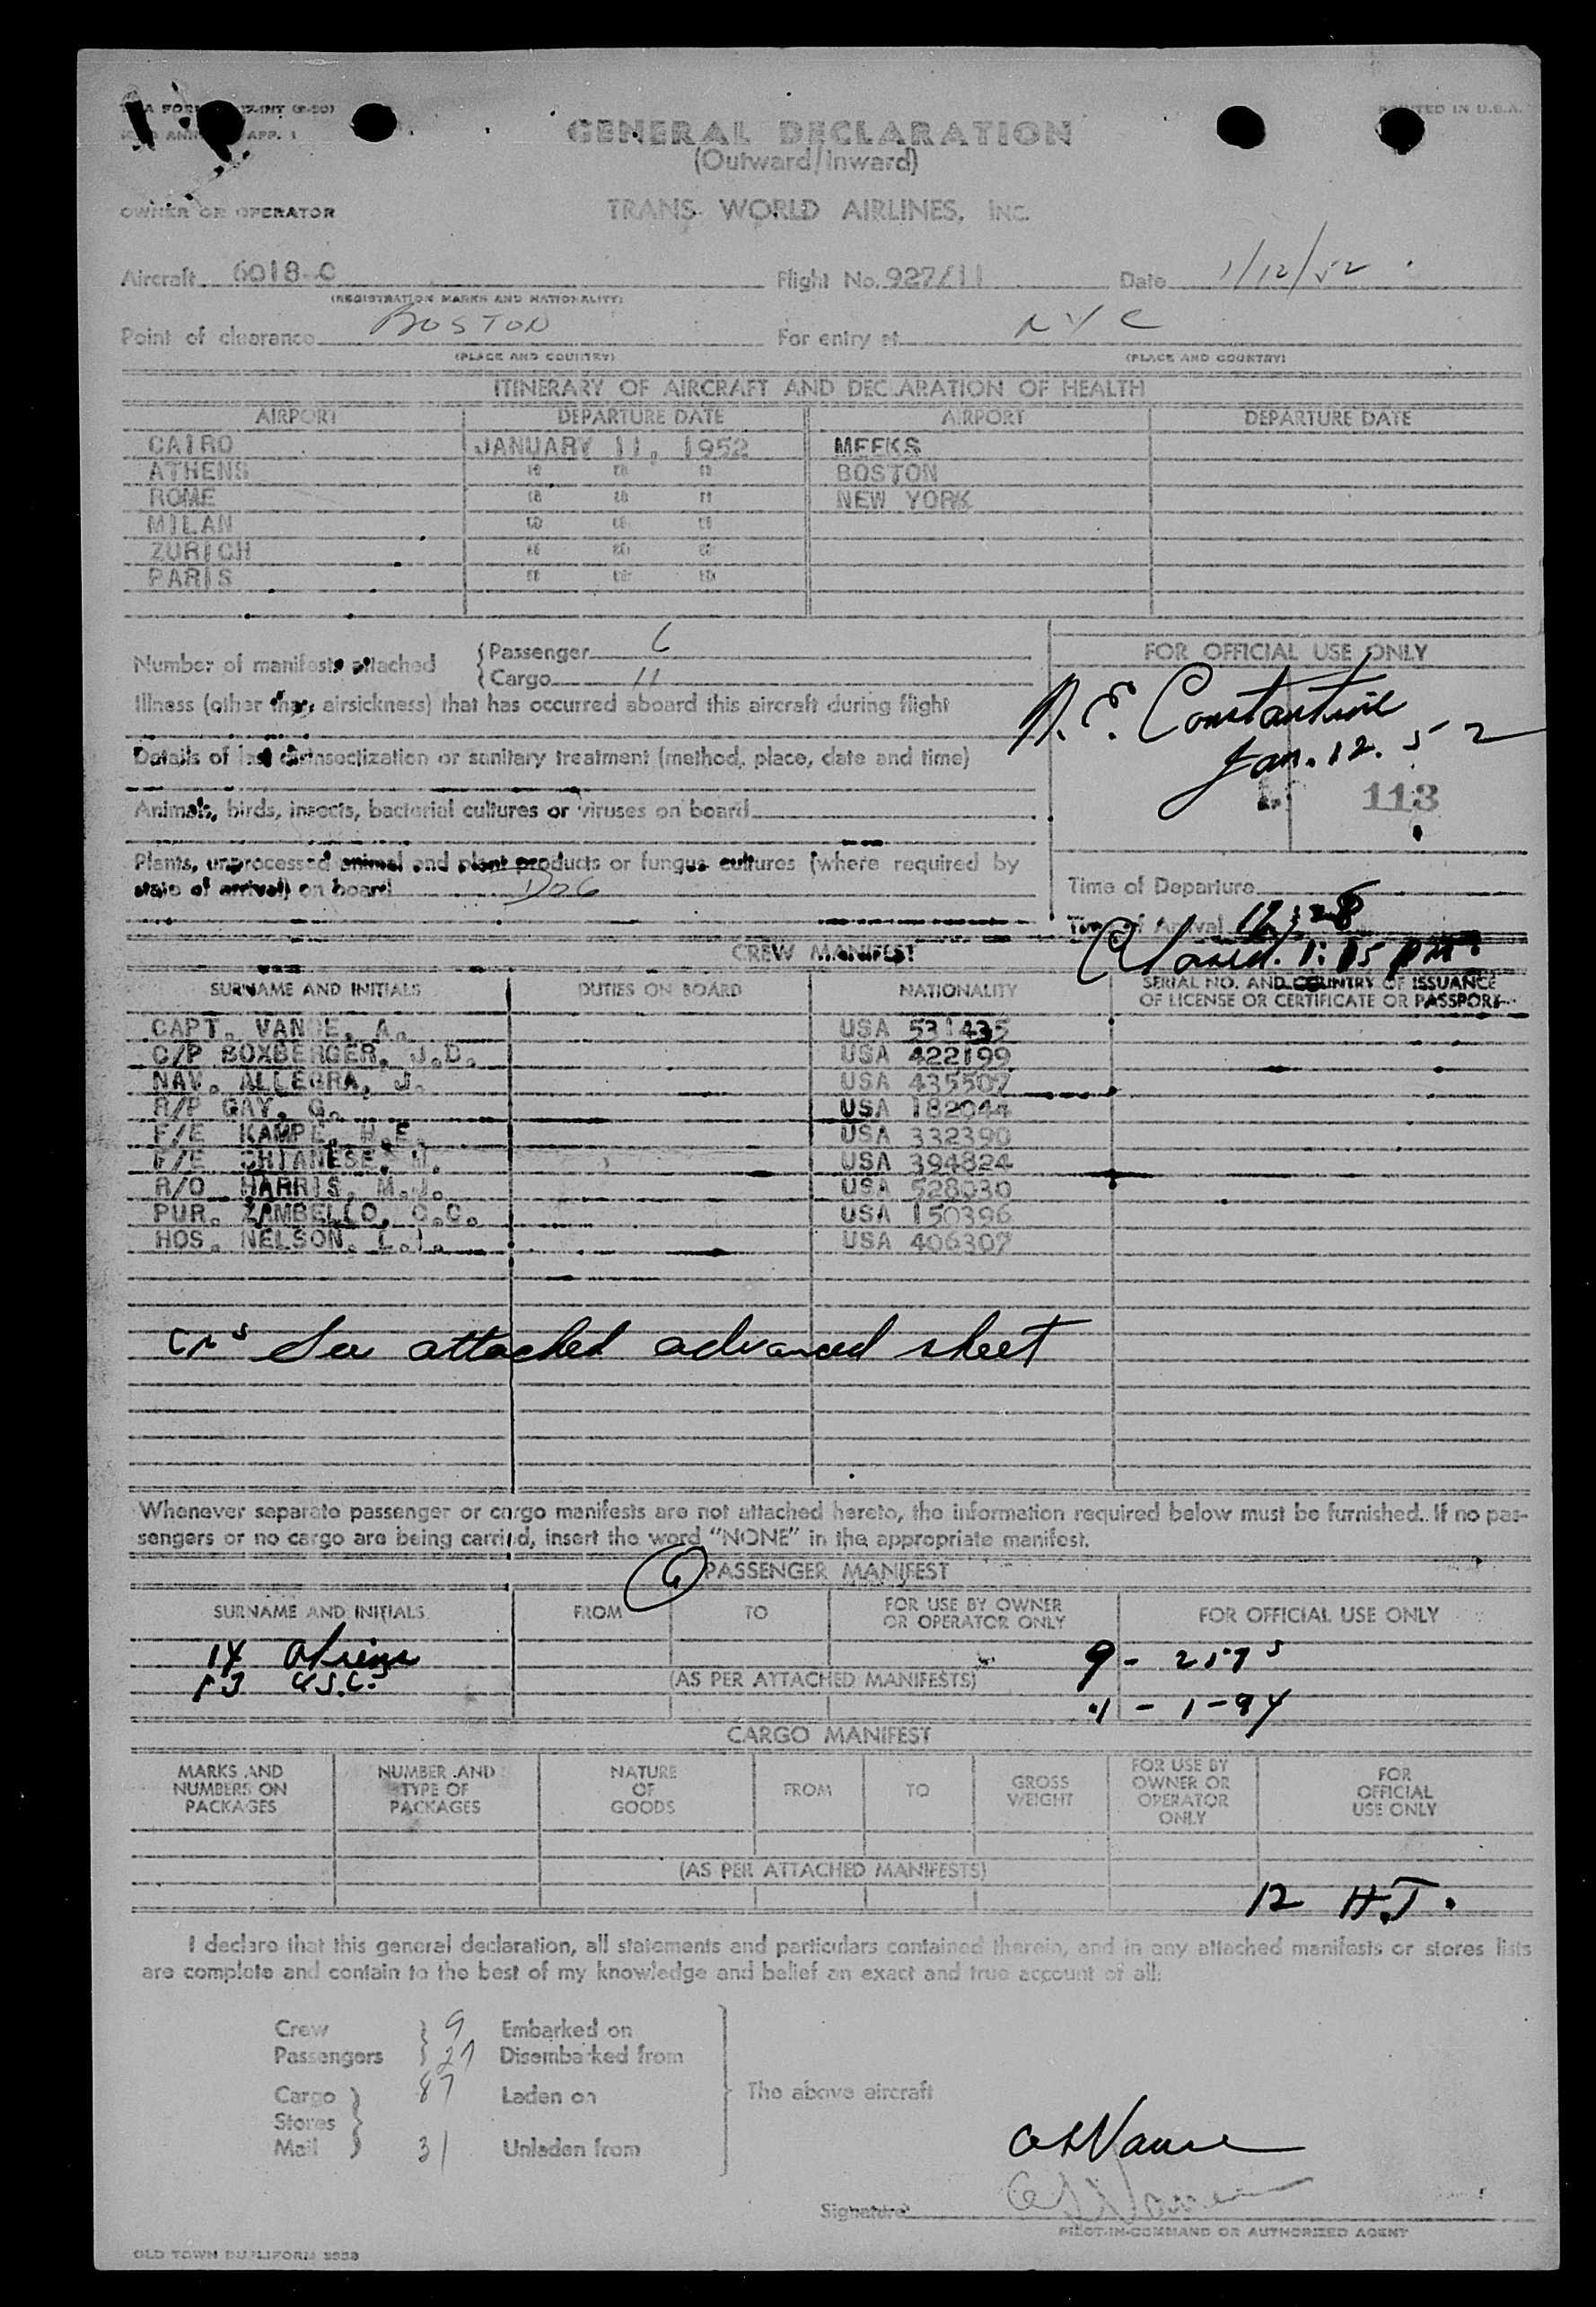 PRINTED IN U.S.A.
GENERAL DECLARATION
(Outward/Inward)
OWNER OR OPERATOR TRANS WORLD AIRLINES, INC.
Aircraft 6018-C Flight No. 927/11 Date 1/12/52
(REGISTRATION MARKS AND NATIONALITY)
Point of clearance BOSTON For entry at NYC
(PLACE AND COUNTRY) (PLACE AND COUNTRY)
ITINERARY OF AIRCRAFT AND DECLARATION OF HEALTH
AIRPORT DEPARTURE DATE AIRPORT DEPARTURE DATE
CAIRO JANUARY 11, 1952 MEEKS
ATHENS " " " BOSTON
ROME " " " NEW YORK
MILAN " " "
ZURICH " " "
PARIS " " "
Number of manifests attached
Passenger 6
Cargo 11
FOR OFFICIAL USE ONLY
Illness (other than airsickness) that has occurred aboard this aircraft during flight
Constantine
Jan. 12. 52
113
Details of last disinsectization or sanitary treatment (method, place, date and time)
Animals, birds, insects, bacterial cultures or viruses on board
Plants, unprocessed animal and plant products or fungus cultures (where required by
state of arrival) on board DOG
Time of Departure
Time of Arrival 12:28
CREW MANIFEST
SURNAME AND INITIALS DUTIES ON BOARD NATIONALITY SERIAL NO. AND COUNTRY OF ISSUANCE
OF LICENSE OR CERTIFICATE OR PASSPORT
CAPT. VANCE, A. USA 531435
C/P BOXBERGER, J.D. USA 422199
NAV. ALLEGRA, J. USA 435507
R/P GAY, G. USA 182044
F/E KAMPE, H.E. USA 332390
F/E CHIANESE, M. USA 394824
R/O HARRIS, M.J. USA 528030
PUR. ZAMBELLO, C.C. USA 150396
HOS. NELSON, L.I. USA 406307
See attached advanced sheet
Whenever separate passenger or cargo manifests are not attached hereto, the information required below must be furnished. If no pas-
sengers or no cargo are being carried, insert the word "NONE" in the appropriate manifest.
6 PASSENGER MANIFEST
SURNAME AND INITIALS FROM TO FOR USE BY OWNER
OR OPERATOR ONLY FOR OFFICIAL USE ONLY
14 Aliens
13 U.S.C.
(AS PER ATTACHED MANIFESTS)
CARGO MANIFEST
MARKS AND
NUMBERS ON
PACKAGES
NUMBER AND
TYPE OF
PACKAGES
NATURE
OF
GOODS
FROM
TO
GROSS
WEIGHT
FOR USE BY
OWNER OR
OPERATOR
ONLY
FOR
OFFICIAL
USE ONLY
(AS PER ATTACHED MANIFESTS)
12 H.J.
I declare that this general declaration, all statements and particulars contained therein, and in any attached manifests or stores lists
are complete and contain to the best of my knowledge and belief an exact and true account of all:
Crew 9 Embarked on
Passengers 27 Disembarked from
Cargo 87 Laden on
The above aircraft
Stores
Mail 31 Unladen from
Signature
PILOT-IN-COMMAND OR AUTHORIZED AGENT